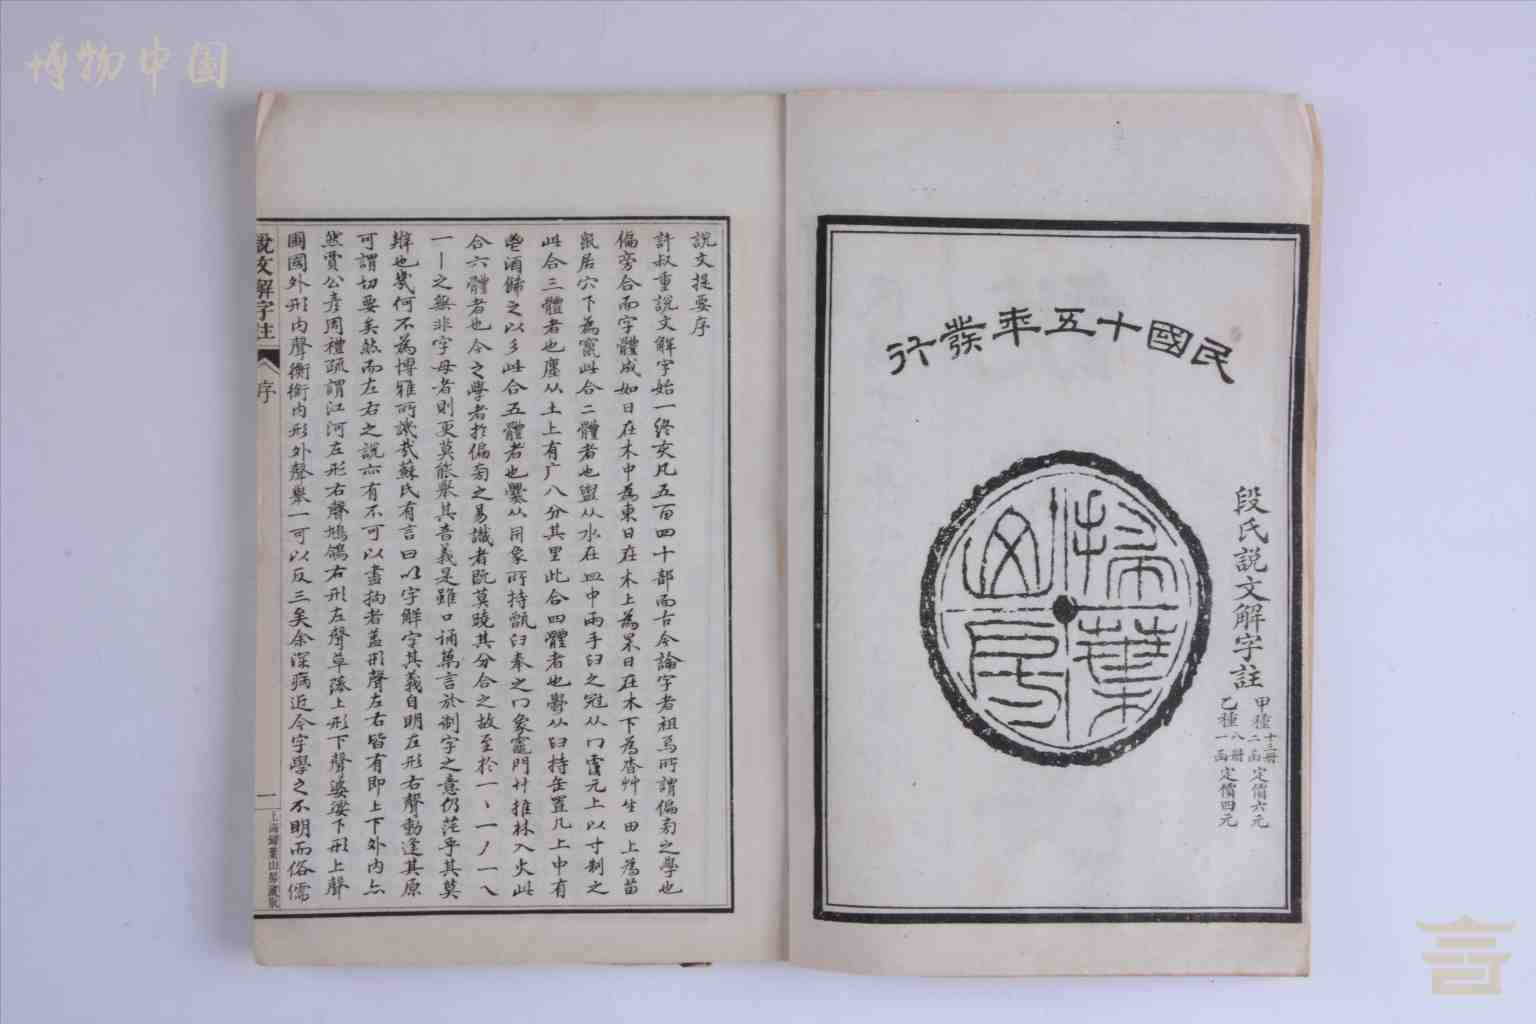 博物中国
民國十五年發行
掃葉山房
段氏說文解字註
甲種十三冊二函定價六元
乙種八冊一函定價四元
說文提要序
許叔重說文解字始一終亥凡五百四十部而古今論字者祖焉所謂偏旁之學也
偏旁合而字體成如日在木中為東日在木上為杲日在木下為杳艸生田上為苗
鼠居穴下為竄此合二體者也盥从水在皿中兩手臼之冠从冖从元上以寸制之
此合三體者也廛从土上有广八分其里此合四體者也鬱从臼持缶置几上中有
鬯酒飾之以彡此合五體者也爨从同象所持甑臼奉之冖象竈門廾推林入火此
合六體者也今之學者於偏旁之易識者旣莫曉其分合之故至於一丶一丿一乀
一丨之無非字母者則更莫能舉其音義是雖口誦萬言於制字之意仍茫乎其莫
辨也幾何不為博雅所譏哉蘇氏有言曰以字解字其義自明左形右聲動逢其原
可謂切要矣然而左右之說亦有不可以盡拘者蓋形聲左右皆有即上下外内亦
然賈公彥周禮疏謂江河左形右聲鳩鴿右形左聲草藻上形下聲婆娑下形上聲
圃國外形内聲衡銜内形外聲舉一可以反三矣余深病近今字學之不明而俗儒
說文解字註
序
一
上海掃葉山房藏版